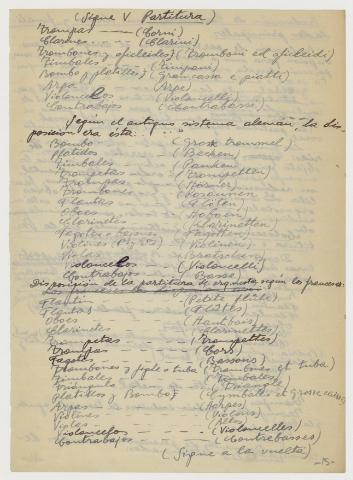 (Sigue V Partitura)
Trompas ---- (Corni)
Clarines ---- (Clarini)
Trombones y oficleides} (Tromboni ed oficleidi)
Timbales (Timpani)
Bombo y platillos} (Grancassa e piatti)
Arpa (Arpe)
Violoncelos (Violoncelle)
Contrabajos (Contrabassi)
Según el antiguo sistema alemán, la dis-
posición era ésta: "
Bombo (Gross trommel)
Platillos (Becken)
Timbales (Pauken)
Trompetas (Trompetten)
Trompas (Hörner)
Trombones (Posaunen)
Flautas (Flöten)
Oboes (Hoboen)
Clarinetes (Klarinetten)
Fagotes o bajones (Fagotten)
Violines (Violinen)
Violas (Bratschen)
Violoncelos (Violoncelle)
Contrabajos (Basse)
Disposición de la partitura de orquesta según los franceses:
Flautin (Petite flûte)
Flautas (Flûtes)
Oboes (Hautbois)
Clarinetes (Clarinettes)
Trompetas --- (Trompettes)
Trompas --- (Cors)
Fagotes --- (Bassons)
Trombones y figle o tuba (Trombones et tuba)
Timbales (Timbales)
Triángulo (Triangle)
Platillos y Bombo} (Cymbales et grosse caisse)
Arpas (Harpes)
Violines (Violons)
Violas (Altos)
Violoncelos (Violoncelles)
Contrabajos (Contrebasses)
(Sigue a la vuelta)
-15-